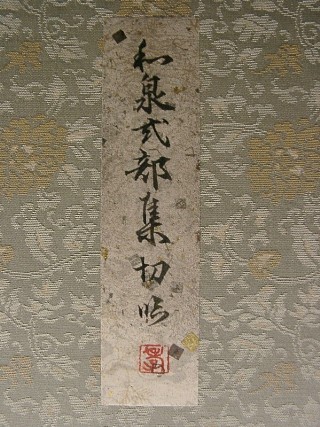 和泉式部集切臨